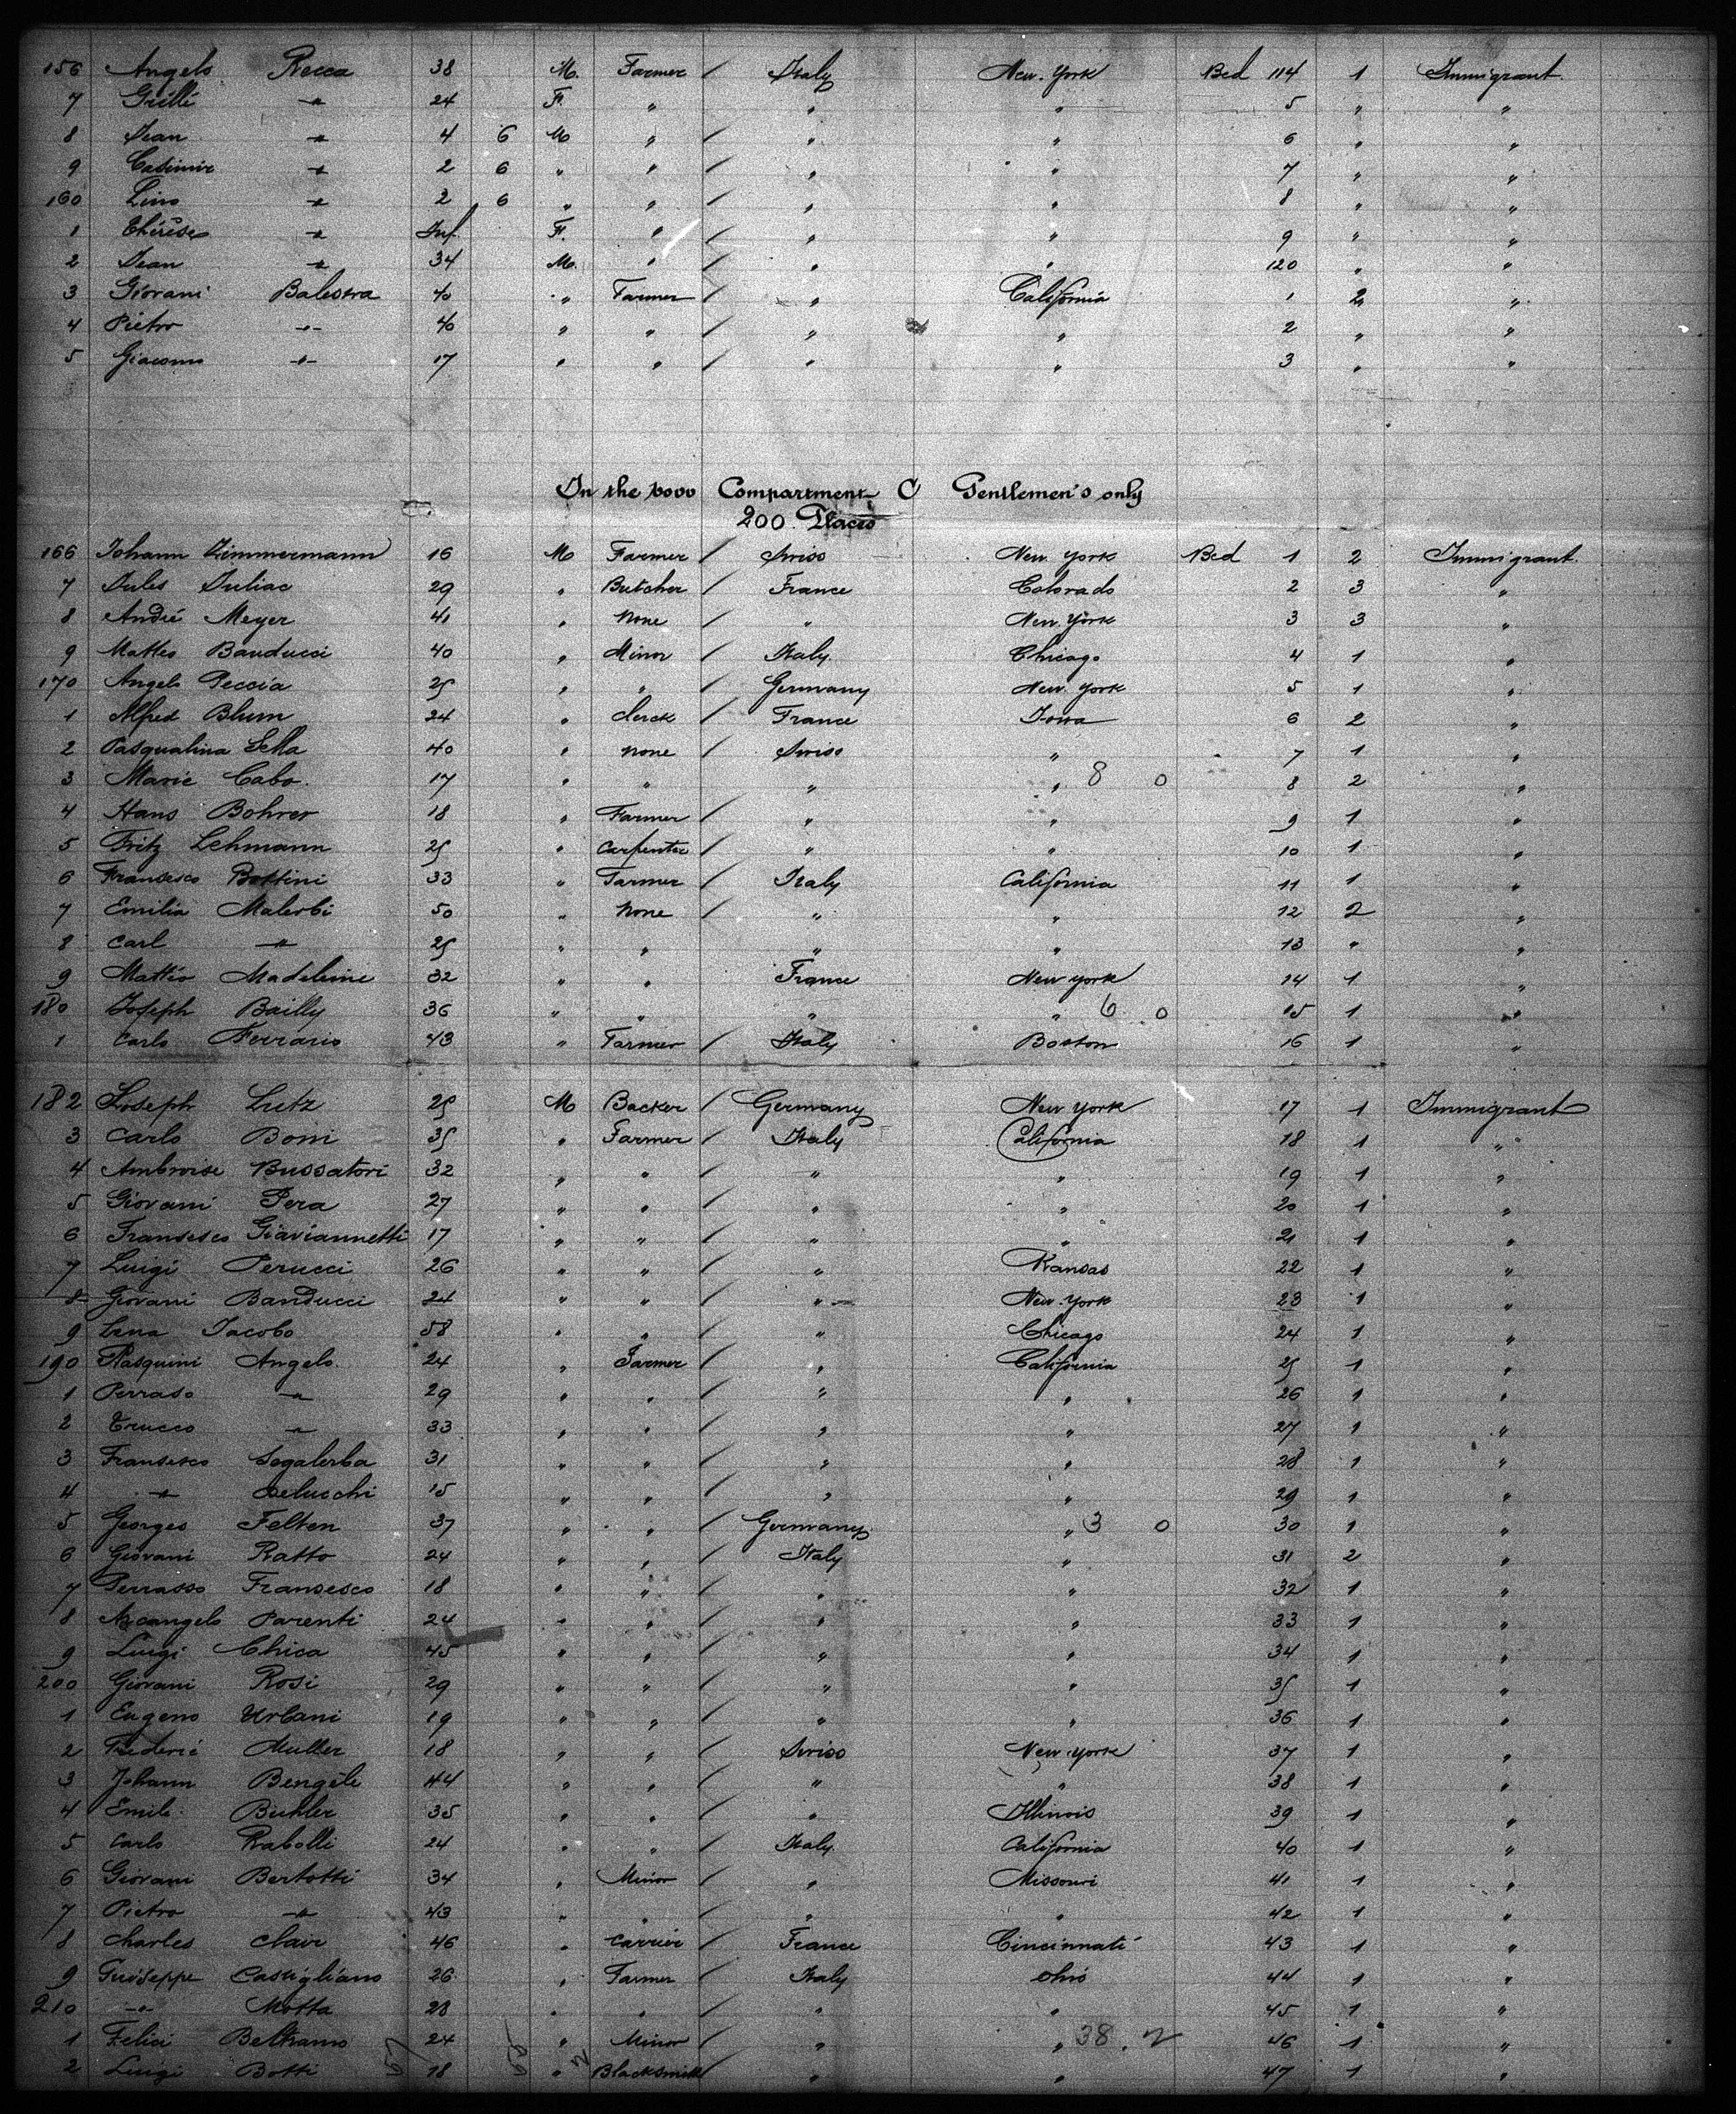 156 Angelo Recca 38 M. Farmer / Italy New-York Bed 114 1 Immigrant.
7 Grilli -"- 24 F. " " " 5 " "
8 Jean -"- 4 6 M " / " " 6 " "
9 Casimir -"- 2 6 " " / " " 7 " "
160 Lino -"- 2 6 " " / " " 8 " "
1 Thérèse -"- Inf. F. " / " " 9 " "
2 Jean -"- 34 M. " / " " 120 " "
3 Giovani Balestra 40 " Farmer / " California 1 2 "
4 Pietro -"- 40 " " / " " 2 " "
5 Giacomo -"- 17 " " / " " 3 " "
In the Compartment C Gentlemen's only
200. Places
166 Johann Zimmermann 16 M Farmer / Swiss New York Bed 1 2 Immigrant.
7 Jules Juliac 29 " Butcher / France Colorado 2 3 "
8 André Meyer 41 " None / " New-York 3 3 "
9 Matteo Banducci 40 " Minor / Italy. Chicago 4 1 "
170 Angelo Peccia 25 " " / Germany New-York 5 1 "
1 Alfred Blum 24 " clerck / France Iowa 6 2 "
2 Pasqualina Sella 40 " none / Swiss " 7 1 "
3 Marie Cabo. 17 " " / " " 8 0 8 2 "
4 Hans Bohrer 18 " Farmer / " " 9 1 "
5 Fritz Lehmann 25 " Carpenter / " " 10 1 "
6 Francesco Bottini 33 " Farmer / Italy California 11 1 "
7 Emilia Malerbi 50 " None / " " 12 2 "
8 Carl -"- 25 " " " " 13 " "
9 Mattéo Madeleine 32 " " France New york 14 1 "
180 Joseph Bailly 36 " " " " 6 0 15 1 "
1 Carlo Ferrario 43 " Farmer / Italy Boston 16 1 "
182 Joseph Lutz 25 M Backer / Germany New York 17 1 Immigrant
3 Carlo Boni 35 " Farmer / Italy California 18 1 "
4 Ambroise Bussatori 32 " " / " " 19 1 "
5 Giovani Pera 27 " " / " " 20 1 "
6 Fransesco Giaviannetti 17 " " / " " 21 1 "
7 Luigi Perucci 26 " " / " Kansas 22 1 "
8 Giovani Banducci 24 " " / " New-York 23 1 "
9 Lena Jacobo 58 " " / " Chicago 24 1 "
190 Pasquini Angelo. 24 " Farmer / " California 25 1 "
1 Perraso -"- 29 " " / " " 26 1 "
2 Trucco -"- 33 " " / " " 27 1 "
3 Fransesco Segalerba 31 " " / " " 28 1 "
4 -"- Delucchi 15 " " / " " 29 1 "
5 Georges Felten 37 " " / Germany " 3 0 30 1 "
6 Giovani Ratto 24 " " / Italy " 31 2 "
7 Perrasso Fransesco 18 " " / " " 32 1 "
8 Arcangelo Parenti 24 " " / " " 33 1 "
9 Luigi Chica 45 " " / " " 34 1 "
200 Giovani Rosi 29 " " / " " 35 1 "
1 Eugeno Urbani 19 " " / " " 36 1 "
2 Frederic Muller 18 " " / Swiss New-York 37 1 "
3 Johann Bengéle 44 " " / " " 38 1 "
4 Emile Buhler 35 " " / " Illinois 39 1 "
5 Carlo Rabolli 24 " " / Italy. California 40 1 "
6 Giovani Bertotti 34 " Minor / " Missouri 41 1 "
7 Pietro -"- 43 " " / " " 42 1 "
8 Charles Clair 46 " Carrier / France Cincinnati 43 1 "
9 Guiseppe Castigliano 26 " Farmer / Italy Ohio 44 1 "
210 -"- Motta 28 " " / " " 45 1 "
1 Felici Beltramo 24 " Minor / " " 38.2 46 1 "
2 Luigi Botti 18 " Blacksmith " " 47 1 "